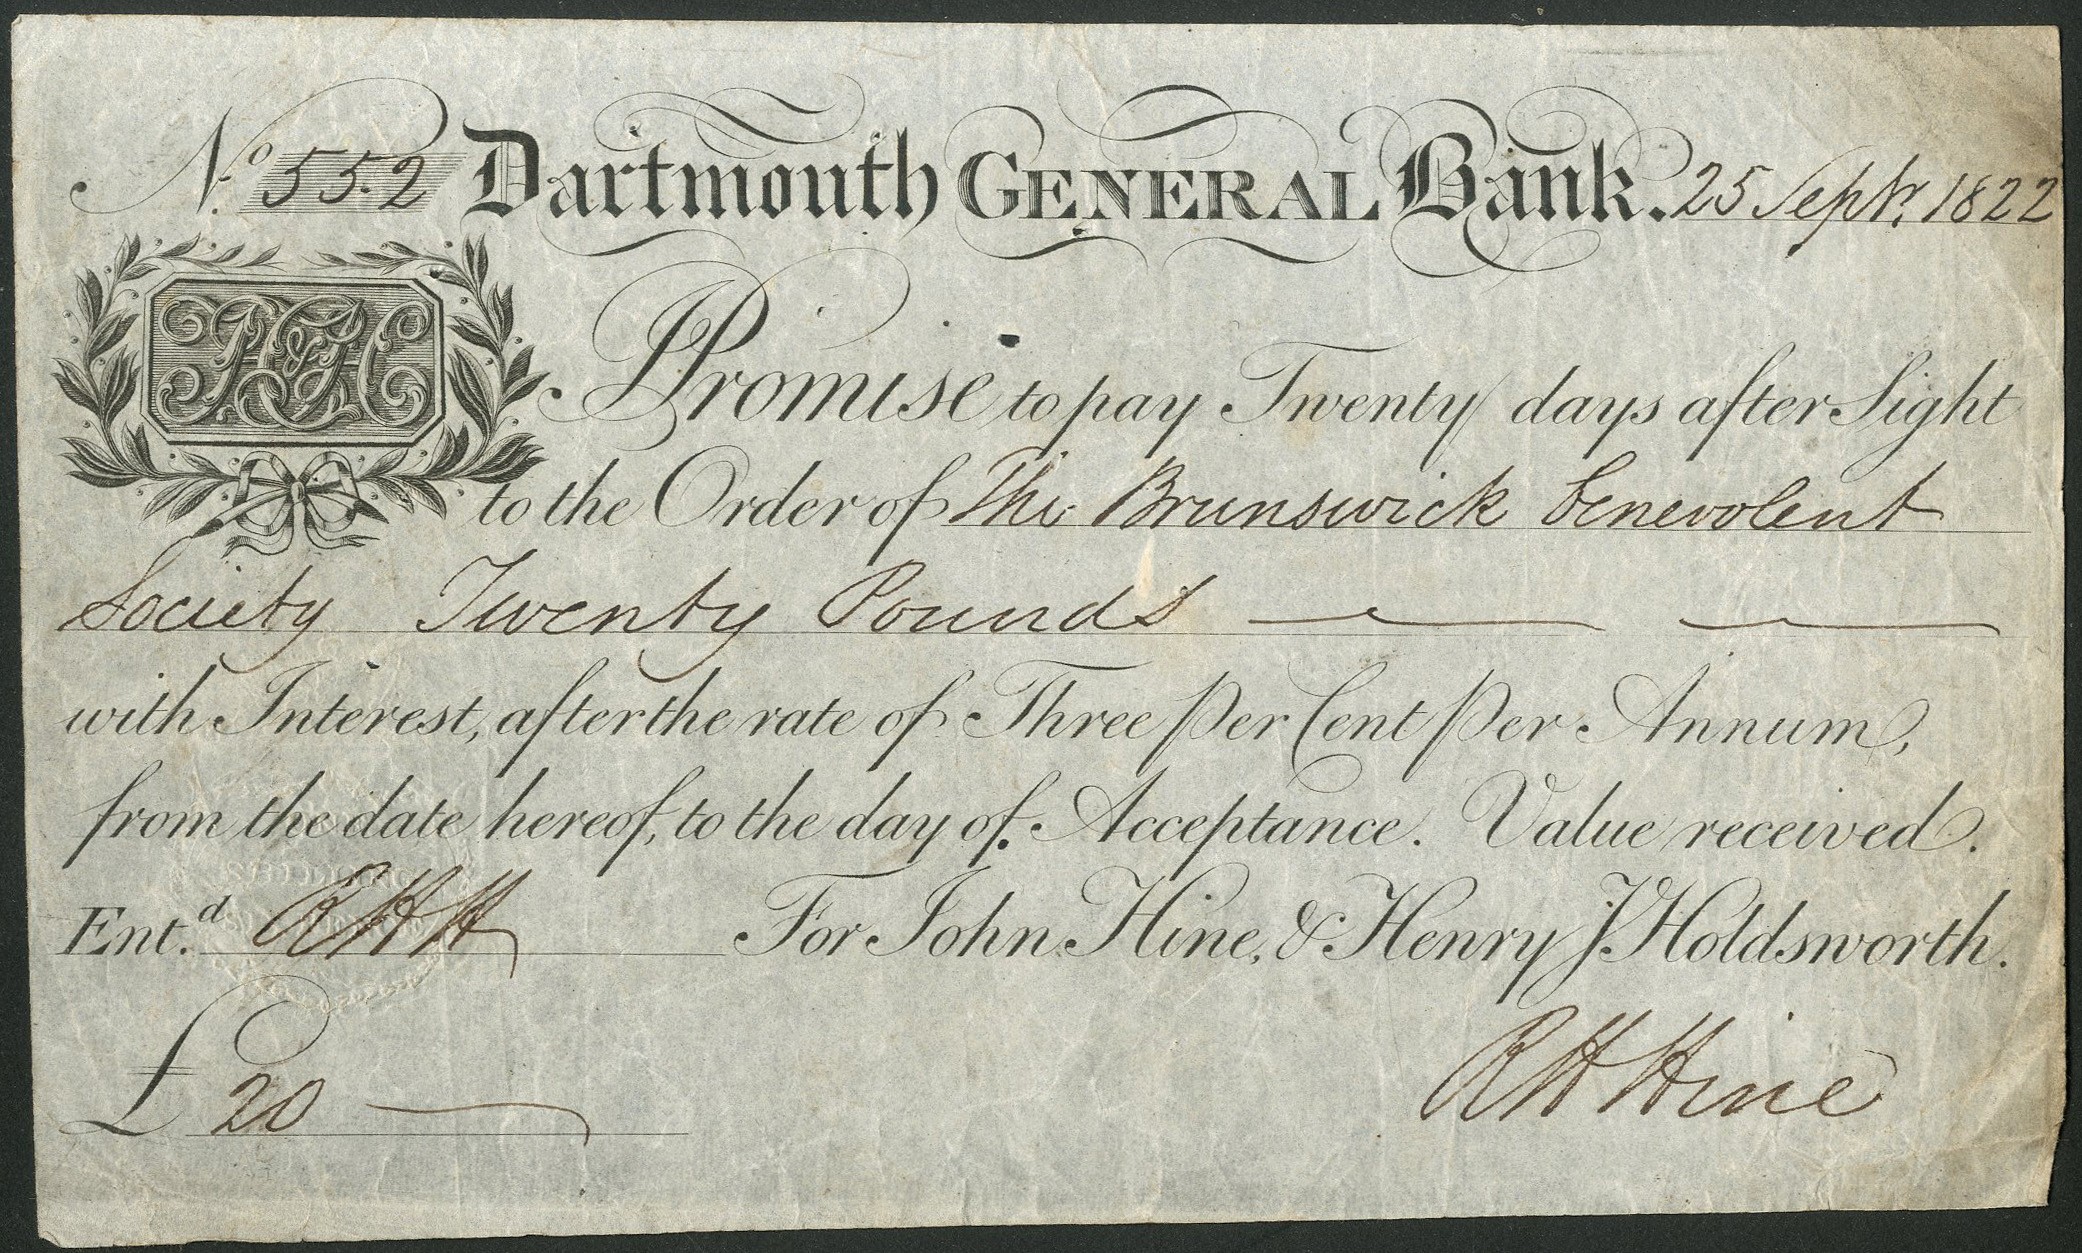 No 552 Dartmouth GENERAL Bank. 25 Septr. 1822
H&H
I Promise to pay Twenty days after Sight
to the Order of The Brunswick benevolent
Society Twenty Pounds
with Interest, after the rate of Three Per Cent Per Annum,
from the date hereof, to the day of Acceptance. Value received.
Ent.d RHH For John Hine, & Henry J. Holdsworth.
£ 20
RH Hine